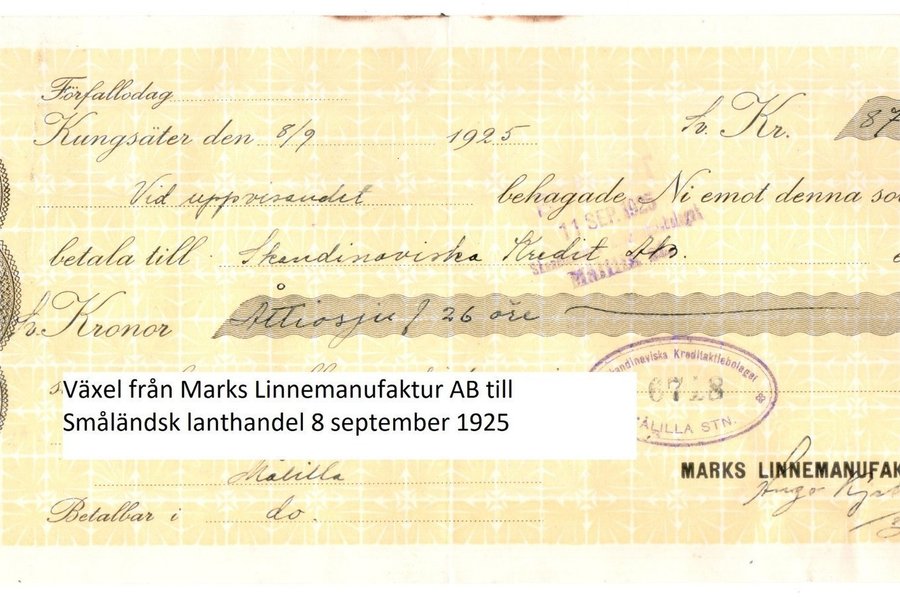 Förfallodag
Kungsäter den 8/9 1925 Kr. 87
Vid uppvisandet behagade Ni emot denna
betala till Skandinaviska Kredit AB.
11 SEP. 1925
Kronor Åttiosju / 26 öre
Skandinaviska Kreditaktiebolaget
6728
MÅLILLA STN.
Växel från Marks Linnemanufaktur AB till
Småländsk lanthandel 8 september 1925
Målilla
MARKS LINNEMANUFAK
Hugo
Betalbar i do.